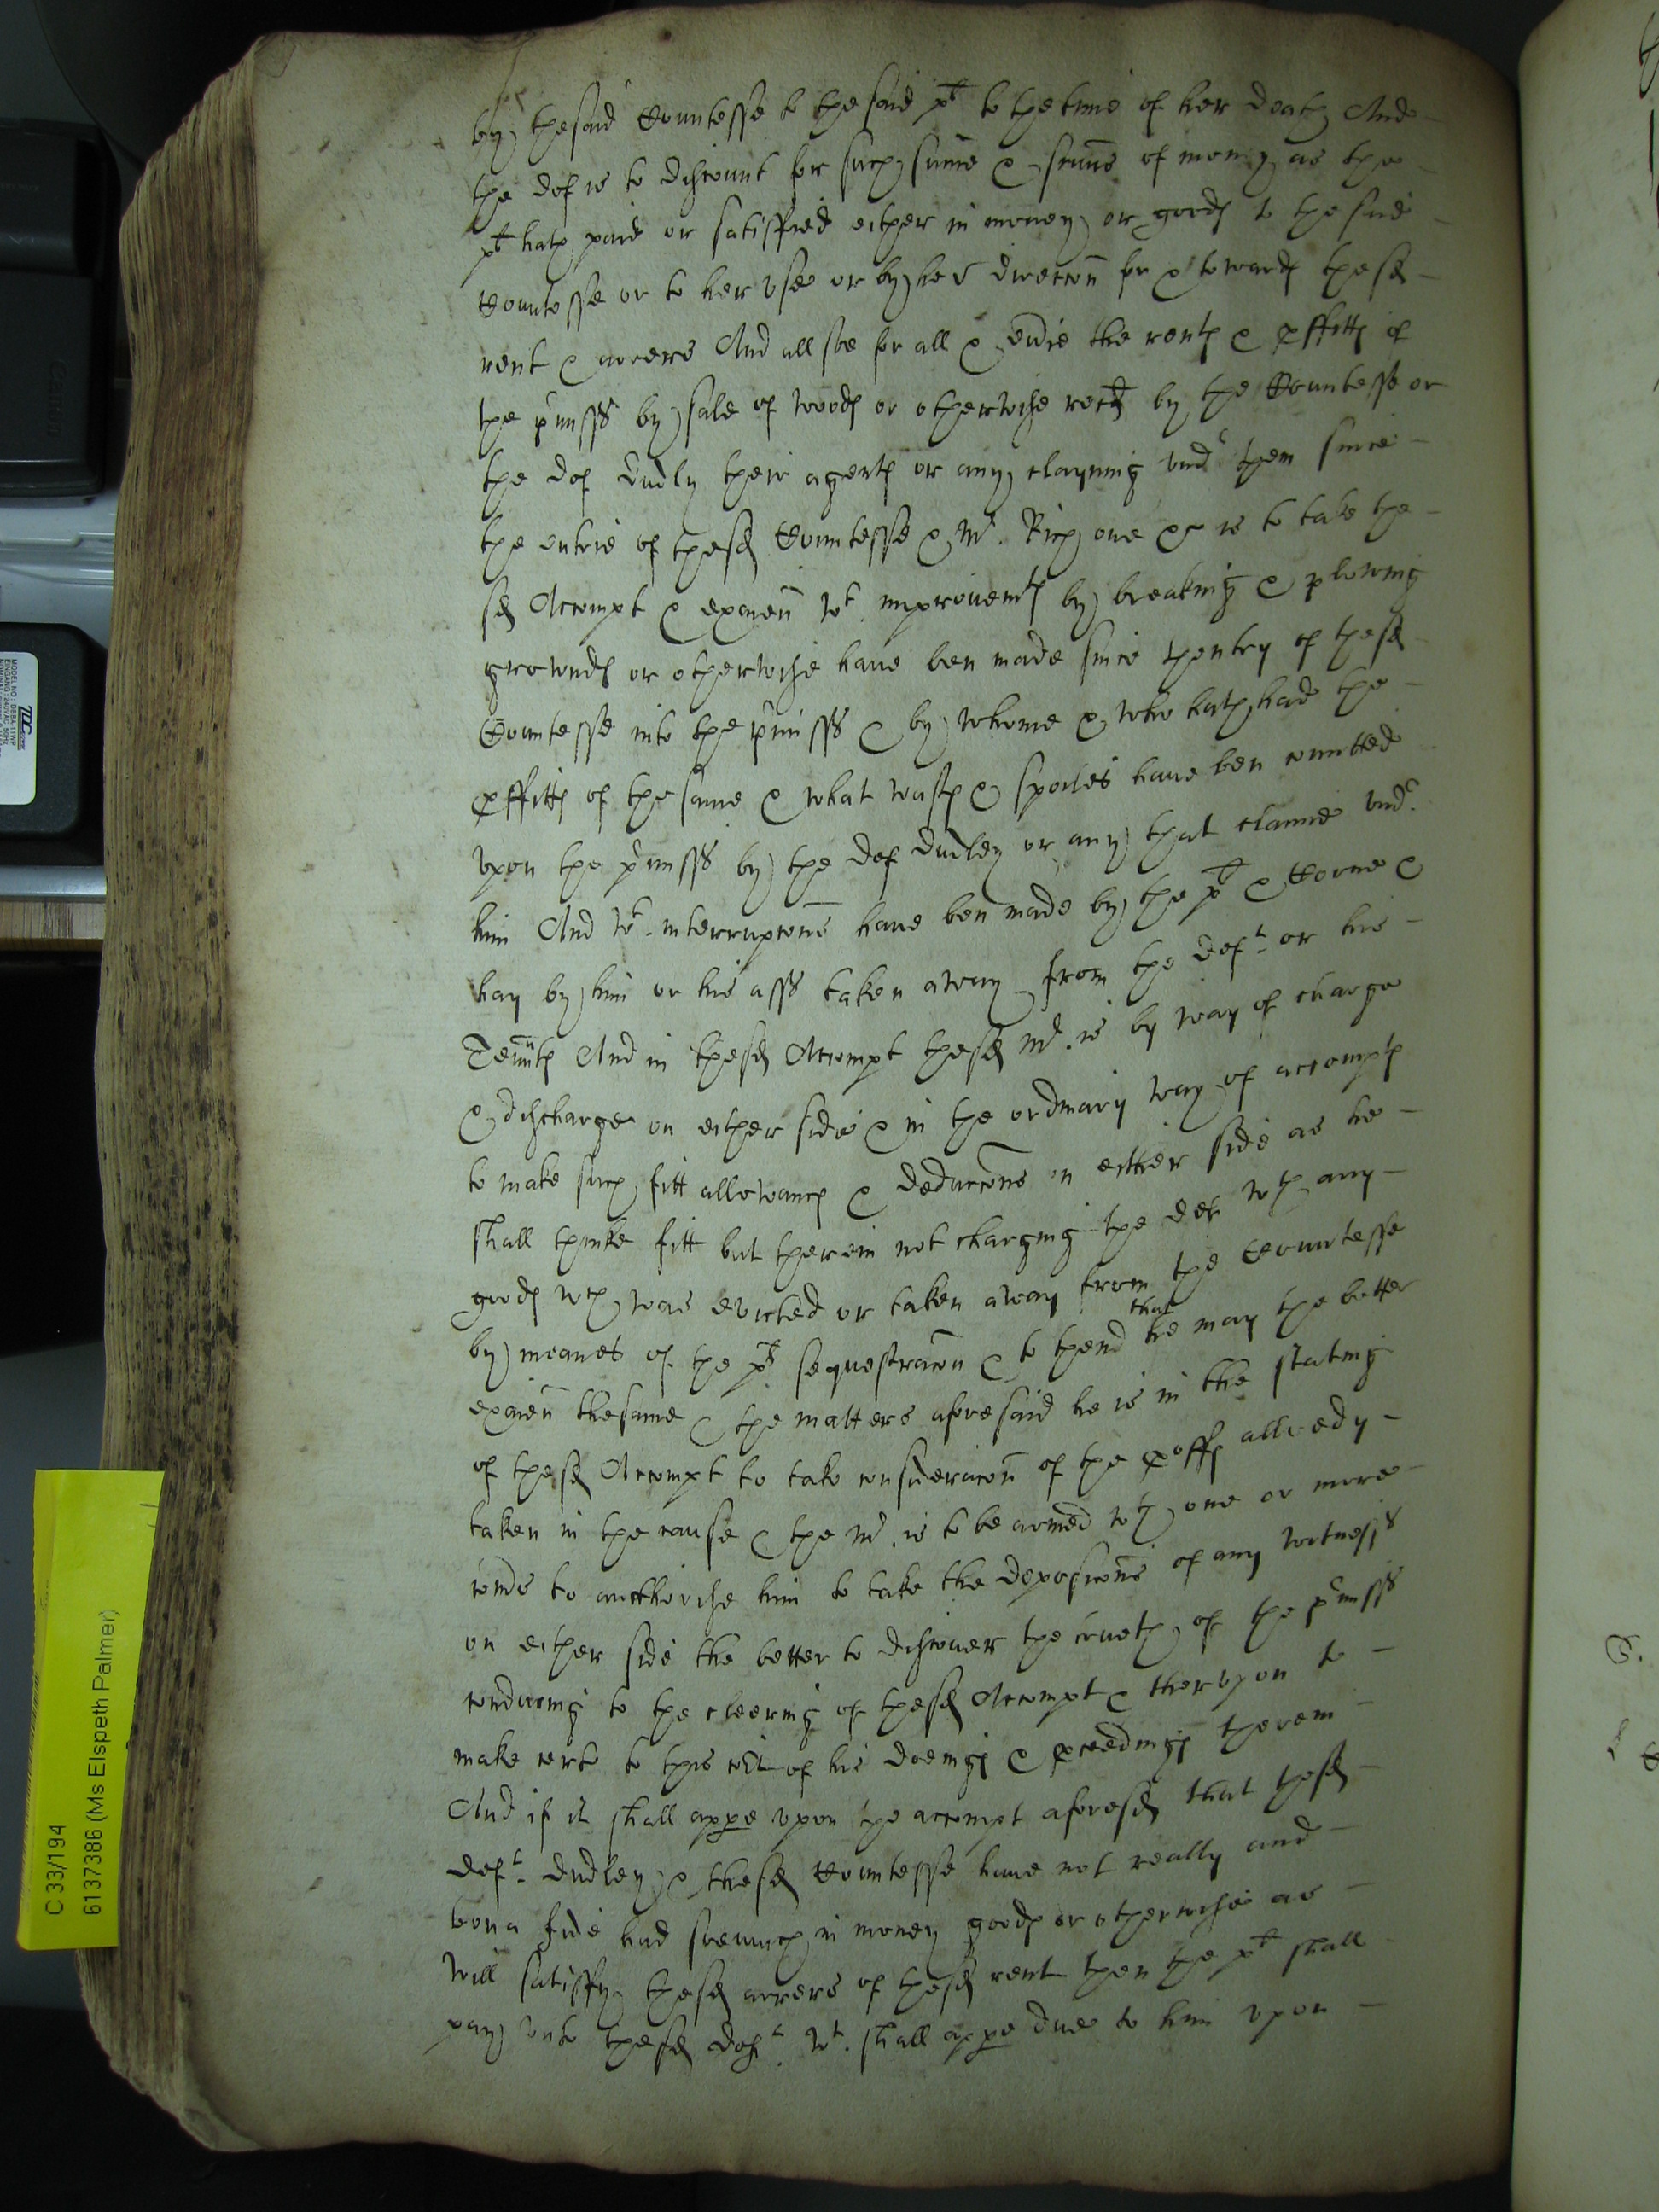 by the said Countesse to the said plt to the time of her death And
the def is to discount for such summe & summs of money as the
plt hath paid or satisffied either in money or goods to the said
Countesse or to her vse or by her direccon for & towards the sd
rent & arrers And all soe for all & the rents & proffitts of
the pmisss by sale of woods or otherwise recd by the Countesse or
the def Dudly their agents or any clayming vndr them since
the entrie of the sd Countesse & Mr. Rich one &c is to take the
sd Accompt & examen wt improuemts by breaking & plowing
growndes or otherwise haue ben made since thentry of the sd
Countesse into the pmisss & by whome & who hath had the
proffitts of the same & what wasts & spoiles haue ben comitted
vpon the pmisss by the def Dudley or any that clame vndr
him And wt interrupcons haue ben made by the plt & Corne &
hay by him or his asss taken away from the deft or his
Tennts And in the sd Accompt the sd Mr. is by way of charge
& discharge on either side & in the ordinary way of accompts
to make such fitt allowancs & deduccons on either side as he
shall thinke fitt but therein not charging the def wth any
goods wch was evicted or taken away from the Countesse
by meanes of the plts sequestracon & to thend that he may the better
examen the same & the matters aforesaid he is in the stating
of the sd Accompt to take consideracon of the proffs allredy
taken in the cause & the Mr. is to be armed wth one or more
comis to aucthorise him to take the deposicons of any witnesss
on either side the better to discouer the trueth of the pmisss
conducing to the cleering of the sd Accompt & therevpon to
make certt to this cort of his doeings & proceedings therein
And if it shall appe vpon the accompt aforesd that the sd
deft. Dudley & the sd Countesse haue not really and
bona fide had soe much in money goods or otherwise as
will satisfy the sd arrers of the sd rent then the plt shall
pay vnto the sd deft. wt. shall appe due to him vpon
C 33/194
6137386 (Ms Elspeth Palmer)
TDC